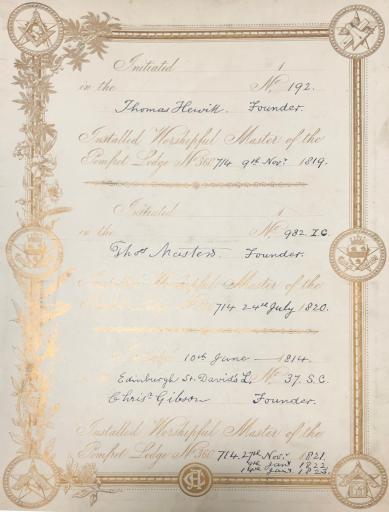 Initiated 1
in the No. 192.
Thomas Hewitt. Founder.
Installed Worshipful Master of the
Pomfret Lodge No 360 714 9th Novr. 1819.
Initiated 1
in the No. 982 I.C.
Thos Masters. Founder.
Installed Worshipful Master of the
714 24th July 1820.
10th June — 1814.
Edinburgh St. David's L. No. 37. S.C.
Chrisr Gibson Founder.
Installed Worshipful Master of the
Pomfret Lodge No 360 714. 27th Novr. 1821.
9th Jany 1822.
14th Jany 1823.